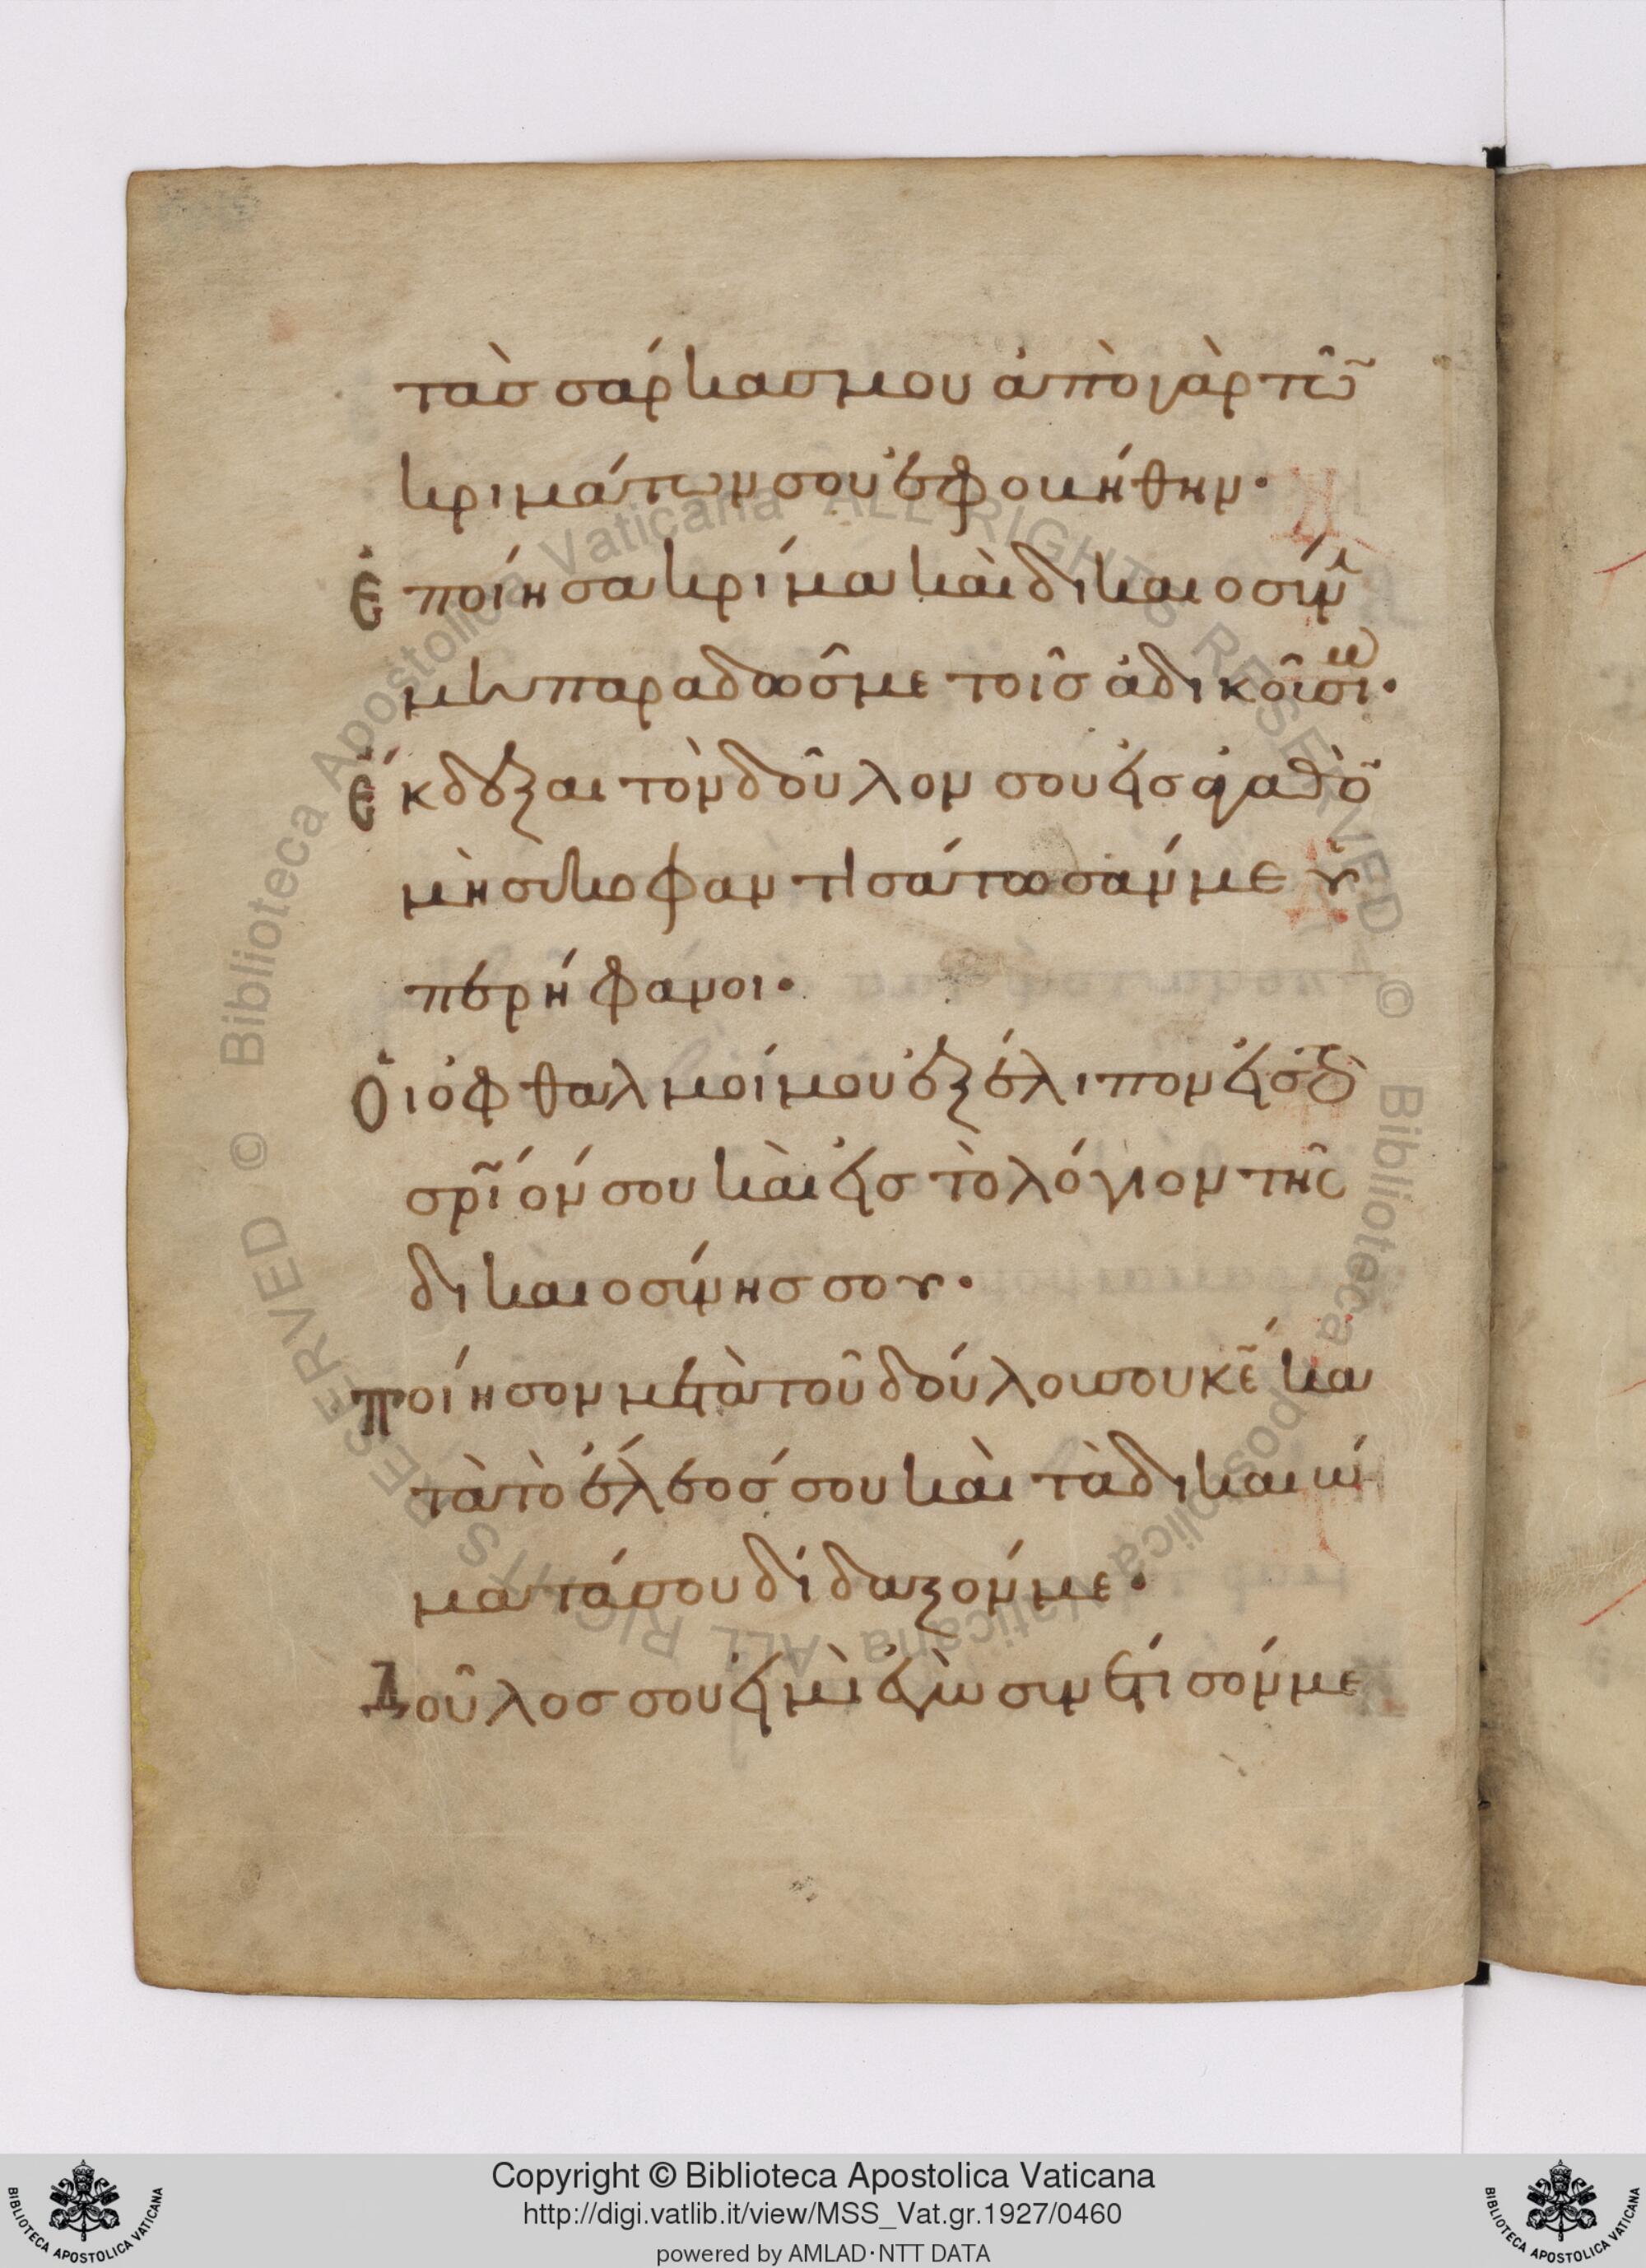 τὰσ σάρκασ μου ἀπὸ γὰρ τῶ̃
κριμάτων σου ἐφοβήθην·
Ἐποίησα κρίμα καὶ δικαιοσύν
μὴ παραδῶσ με τοῖσ ἀδικοῦσί με·
Ἔκδεξαι τὸν δοῦλον σου εἰσ ἀγαθὸ
μὴ συκοφαντησάτωσάν με ὑ
περήφανοι·
Οἱ ὀφθαλμοί μου ἐξέλιπον εἰσ τὸ
σρ̃ιόν σου καὶ εἰσ τὸ λόγιον τῆσ
δικαιοσύνησ σου·
Ποίησον μετὰ τοῦ δούλου σου κε̃ κα
τὰ τὸ ἔλεόσ σου καὶ τὰ δικαιώ
ματά σου δίδαξόν με·
Δοῦλοσ σου εἰμὶ ἐγὼ συνέτισόν με
© Biblioteca Apostolica Vaticana ALL RIGHTS RESERVED © Biblioteca Apostolica Vaticana ALL RIGHTS RESERVED
Copyright © Biblioteca Apostolica Vaticana
http://digi.vatlib.it/view/MSS_Vat.gr.1927/0460
powered by AMLAD·NTT DATA
BIBLIOTECA APOSTOLICA VATICANA
BIBLIOTECA APOSTOLICA VATICANA